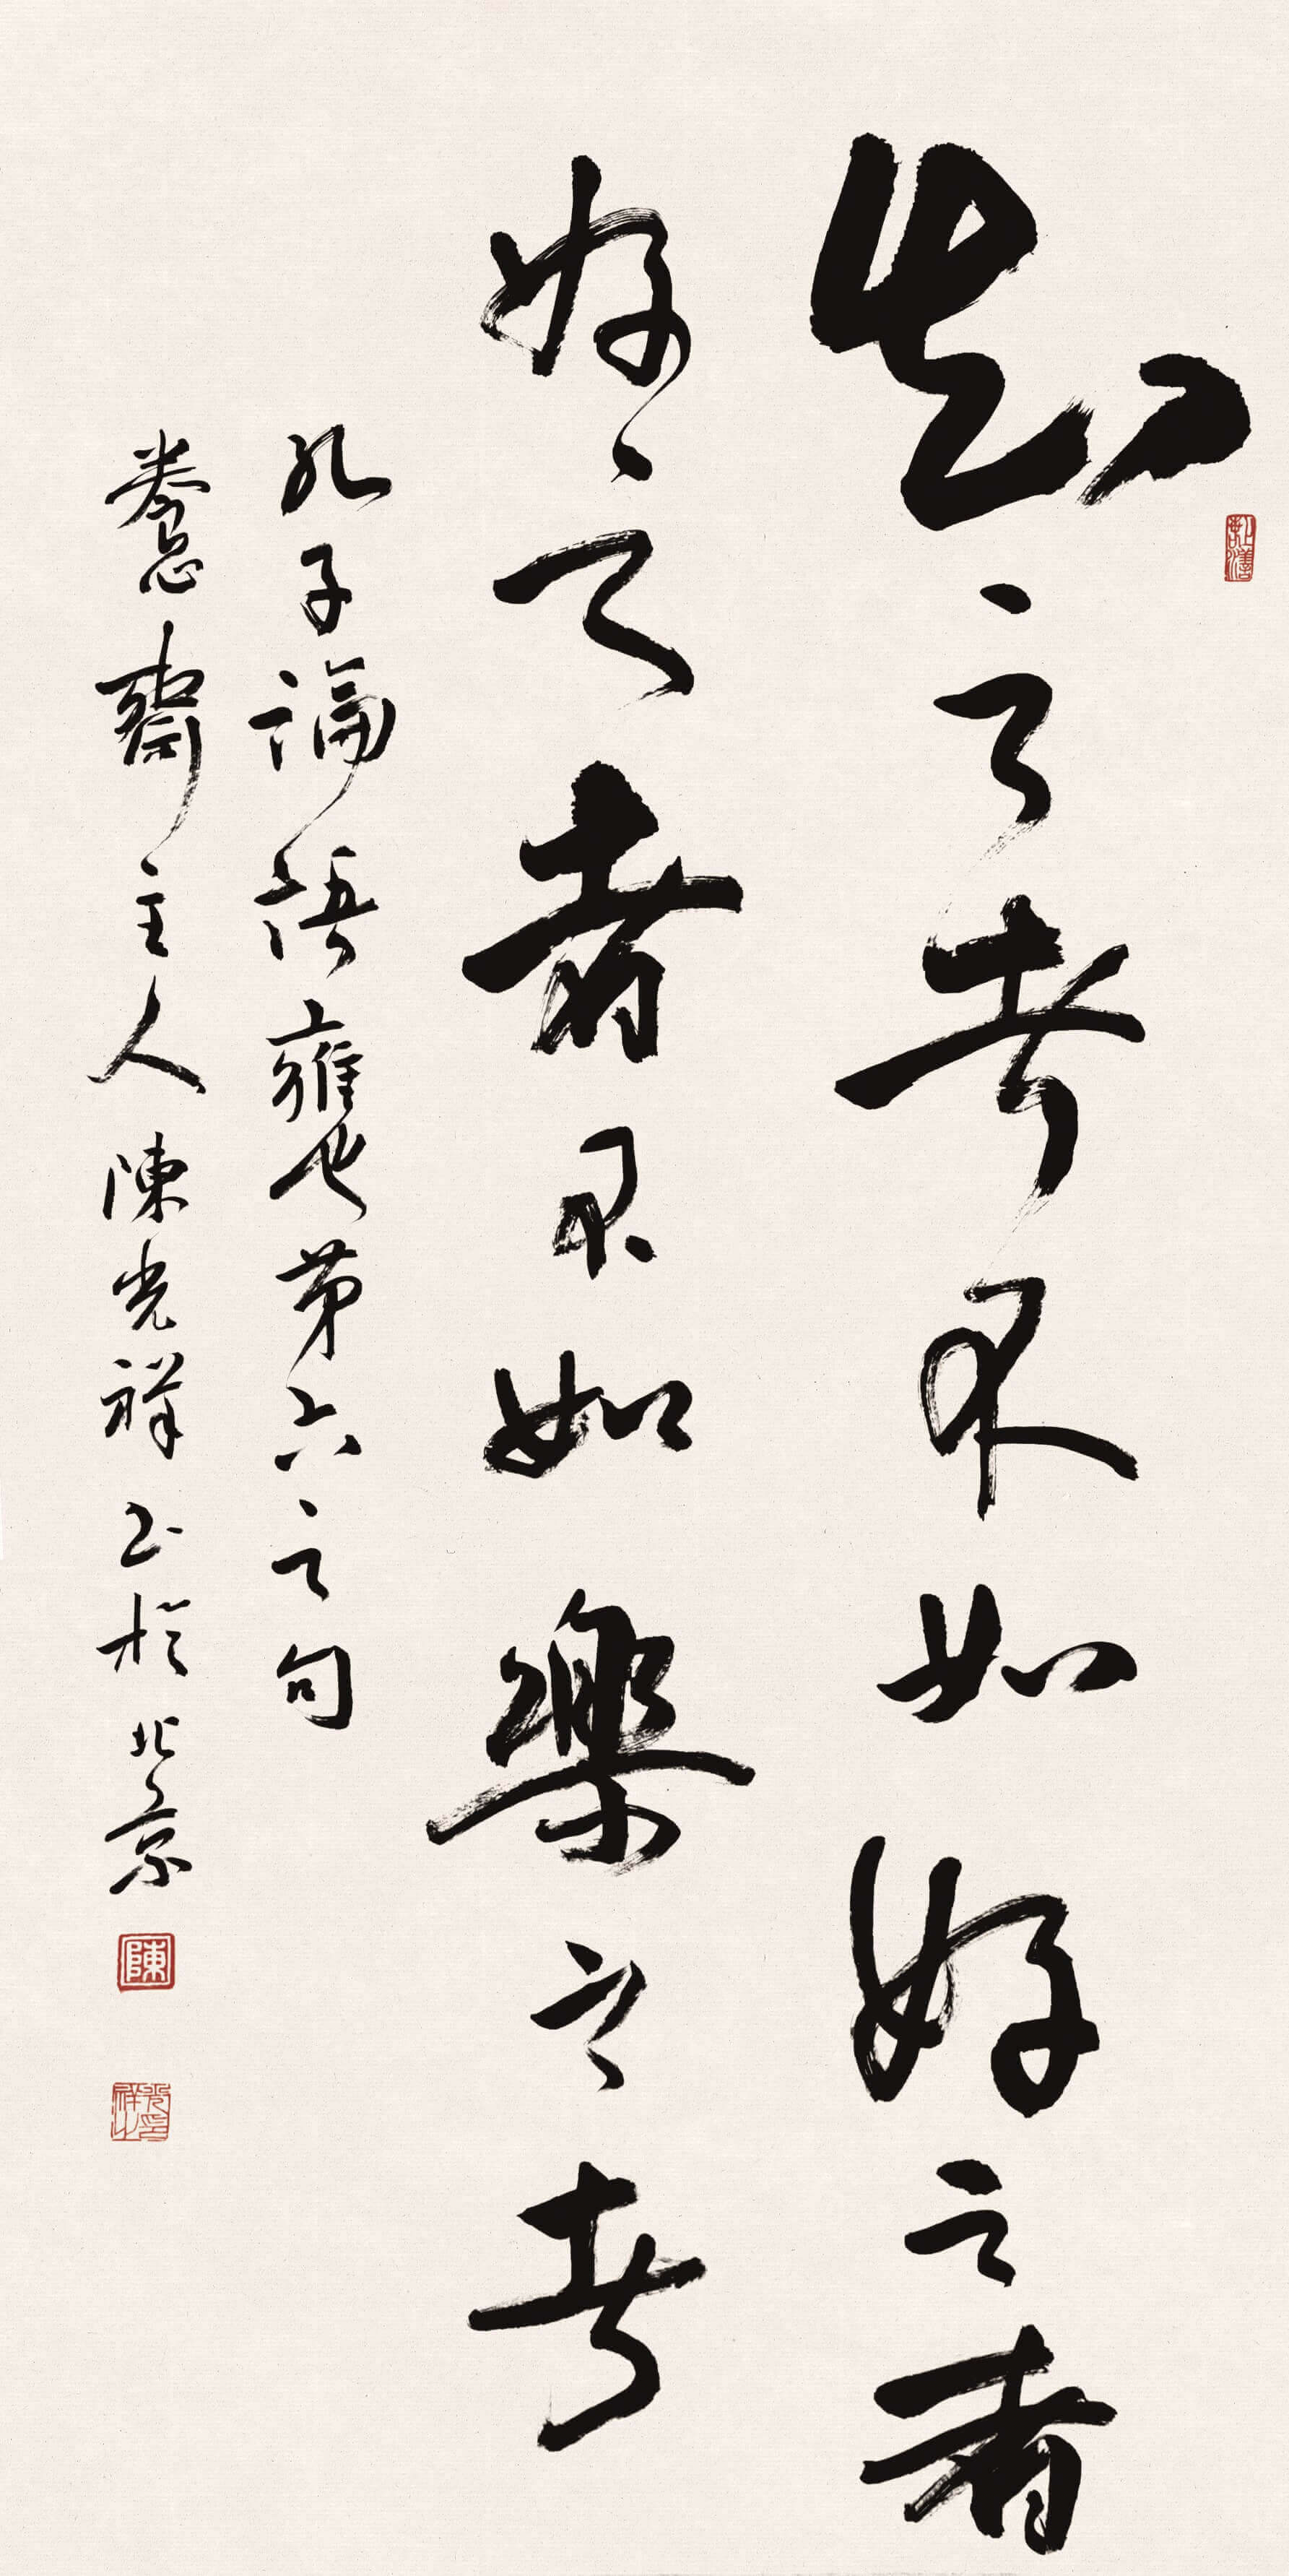 知之者不如好之者
好之者不如樂之者
孔子論語雍也第六之句
養怡齋主人陳光祥书於北京
陳